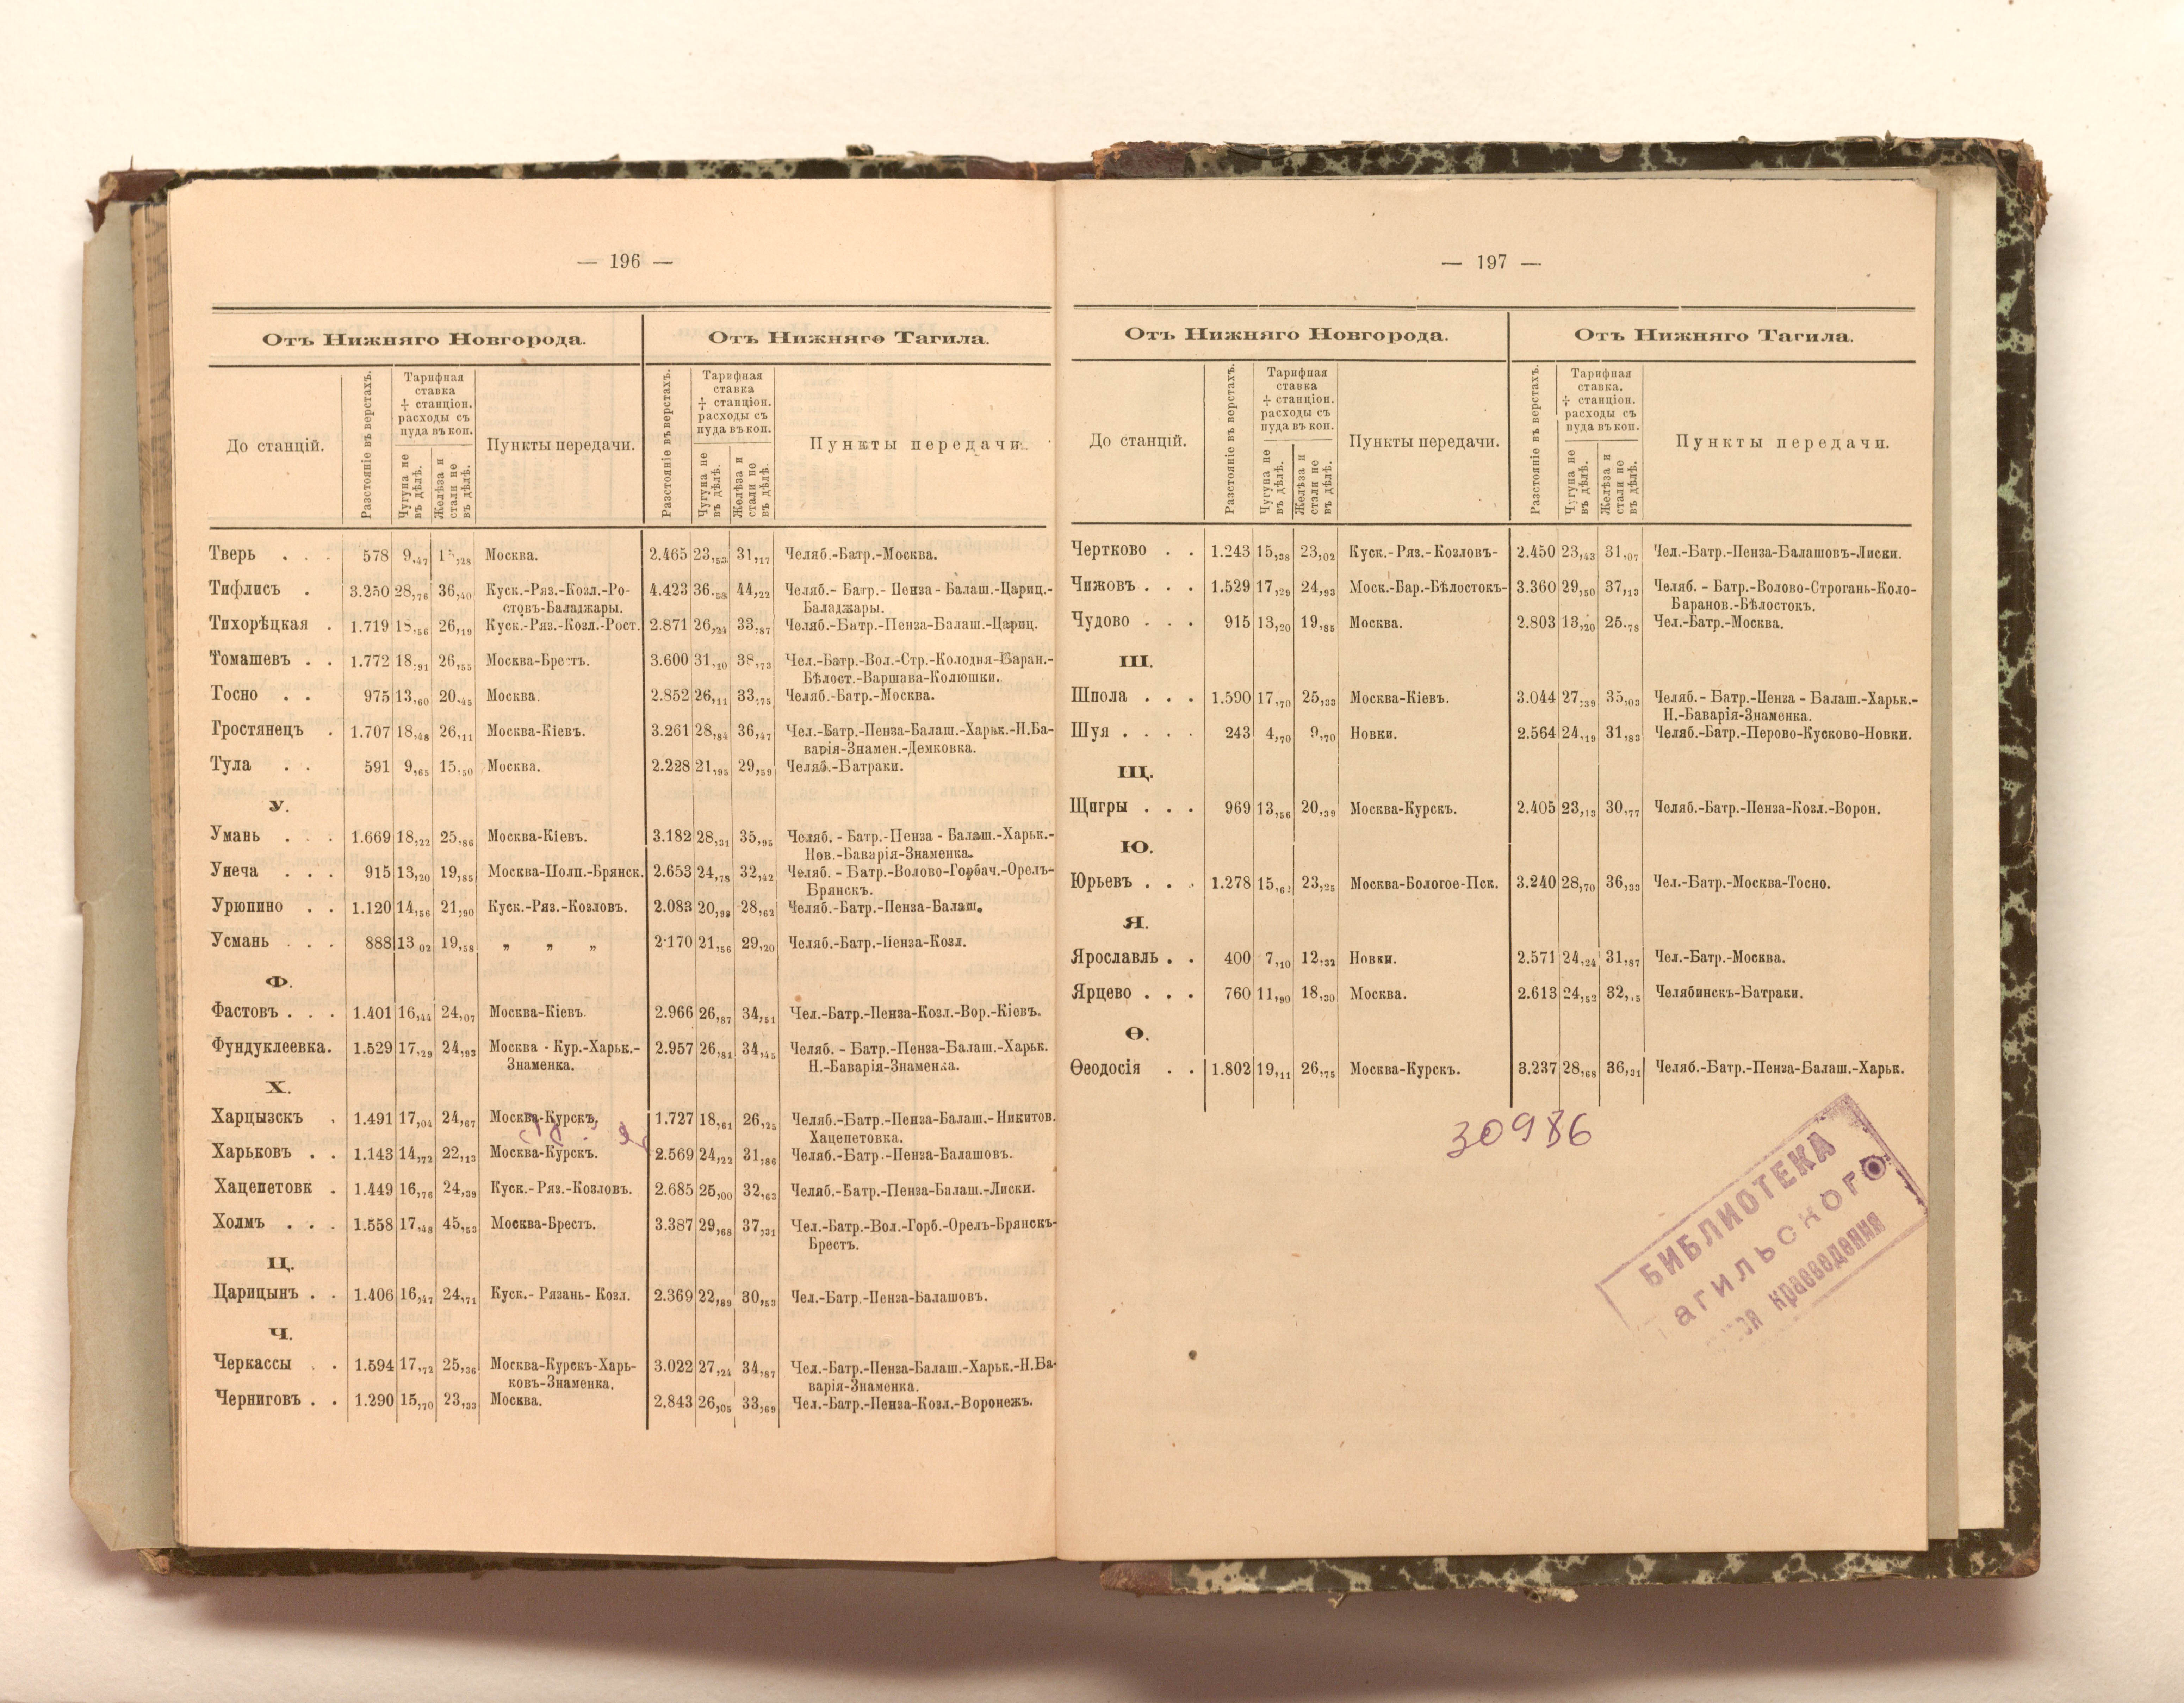 — 196 —
Отъ Нижняго Новгорода. Отъ Нижняго Тагила.
До станцій. Разстояніе въ верстахъ. Тарифная ставка + станціон. расходы съ пуда въ коп. Чугуна не въ дѣлѣ. Желѣза и стали не въ дѣлѣ. Пункты передачи. Разстояніе въ верстахъ. Тарифная ставка + станціон. расходы съ пуда въ коп. Чугуна не въ дѣлѣ. Желѣза и стали не въ дѣлѣ. Пункты передачи.
Тверь . . . 578 9,47 ,28 Москва. 2.465 23,53 31,17 Челяб.-Батр.-Москва.
Тифлисъ . 3.250 28,76 36,40 Куск.-Ряз.-Козл.-Ро- 4.423 36,58 44,22 Челяб.- Батр.- Пенза - Балаш.-Цариц.-
стовъ-Баладжары. Баладжары.
Тихорѣцкая . 1.719 18,56 26,19 Куск.-Ряз.-Козл.-Рост. 2.871 26,24 33,87 Челяб.-Батр.-Пенза-Балаш.-Цариц.
Томашевъ . . 1.772 18,91 26,55 Москва-Брестъ. 3.600 31,10 38,73 Чел.-Батр.-Вол.-Стр.-Колодня-Баран.-
Бѣлост.-Варшава-Колюшки.
Тосно . . 975 13,60 20,45 Москва. 2.852 26,11 33,75 Челяб.-Батр.-Москва.
Тростянецъ . 1.707 18,48 26,11 Москва-Кіевъ. 3.261 28,84 36,47 Чел.-Батр.-Пенза-Балаш.-Харьк.-Н.Ба-
варія-Знамен.-Демковка.
Тула . . 591 9,65 15,50 Москва. 2.228 21,95 29,59 Челяб.-Батраки.
У.
Умань . . . 1.669 18,22 25,86 Москва-Кіевъ. 3.182 28,31 35,95 Челяб. - Батр.-Пенза - Балаш.-Харьк.-
Нов.-Баварія-Знаменка.
Унеча . . . 915 13,20 19,85 Москва-Полп.-Брянск. 2.653 24,78 32,42 Челяб. - Батр.-Волово-Горбач.-Орелъ-
Брянскъ.
Урюпино . . 1.120 14,56 21,90 Куск.-Ряз.-Козловъ. 2.083 20,98 28,62 Челяб.-Батр.-Пенза-Балаш.
Усмань . . . 888 13,02 19,58 „ „ „ 2.170 21,56 29,20 Челяб.-Батр.-Пенза-Козл.
Ф.
Фастовъ . . . 1.401 16,44 24,07 Москва-Кіевъ. 2.966 26,87 34,51 Чел.-Батр.-Пенза-Козл.-Вор.-Кіевъ.
Фундуклеевка. 1.529 17,29 24,93 Москва - Кур.-Харьк.- 2.957 26,81 34,45 Челяб. - Батр.-Пенза-Балаш.-Харьк.
Знаменка. Н.-Баварія-Знаменка.
Х.
Харцызскъ . 1.491 17,04 24,67 Москва-Курскъ. 1.727 18,61 26,25 Челяб.-Батр.-Пенза-Балаш.-Никитов.
Хацепетовка.
Харьковъ . . 1.143 14,72 22,13 Москва-Курскъ. 2.569 24,22 31,86 Челяб.-Батр.-Пенза-Балашовъ.
Хацепетовк . 1.449 16,76 24,39 Куск.-Ряз.-Козловъ. 2.685 25,00 32,63 Челяб.-Батр.-Пенза-Балаш.-Лиски.
Холмъ . . . 1.558 17,48 45,53 Москва-Брестъ. 3.387 29,68 37,31 Чел.-Батр.-Вол.-Горб.-Орелъ-Брянскъ-
Брестъ.
Ц.
Царицынъ . . 1.406 16,47 24,71 Куск.- Рязань- Козл. 2.369 22,89 30,53 Чел.-Батр.-Пенза-Балашовъ.
Ч.
Черкассы . . 1.594 17,72 25,36 Москва-Курскъ-Харь- 3.022 27,24 34,87 Чел.-Батр.-Пенза-Балаш.-Харьк.-Н.Ба-
ковъ-Знаменка. варія-Знаменка.
Черниговъ . . 1.290 15,70 23,33 Москва. 2.843 26,05 33,69 Чел.-Батр.-Пенза-Козл.-Воронежъ.
— 197 —
Отъ Нижняго Новгорода. Отъ Нижняго Тагила.
До станцій. Разстояніе въ верстахъ. Тарифная ставка + станціон. расходы съ пуда въ коп. Чугуна не въ дѣлѣ. Желѣза и стали не въ дѣлѣ. Пункты передачи. Разстояніе въ верстахъ. Тарифная ставка. + станціон. расходы съ пуда въ коп. Чугуна не въ дѣлѣ. Желѣза и стали не въ дѣлѣ. Пункты передачи.
Чертково . . 1.243 15,38 23,02 Куск.-Ряз.-Козловъ- 2.450 23,43 31,07 Чел.-Батр.-Пенза-Балашовъ-Лиски.
Чижовъ . . . 1.529 17,29 24,93 Моск.-Бар.-Бѣлостокъ- 3.360 29,50 37,13 Челяб. - Батр.-Волово-Строгань-Коло-
Баранов.-Бѣлостокъ.
Чудово . . . 915 13,20 19,85 Москва. 2.803 13,20 25,78 Чел.-Батр.-Москва.
Ш.
Шпола . . . 1.590 17,70 25,33 Москва-Кіевъ. 3.044 27,39 35,03 Челяб.- Батр.-Пенза - Балаш.-Харьк.-
Н.-Баварія-Знаменка.
Шуя . . . . 243 4,70 9,70 Новки. 2.564 24,19 31,83 Челяб.-Батр.-Перово-Кусково-Новки.
Щ.
Щигры . . . 969 13,56 20,39 Москва-Курскъ. 2.405 23,13 30,77 Челяб.-Батр.-Пенза-Козл.-Ворон.
Ю.
Юрьевъ . . . 1.278 15,62 23,25 Москва-Бологое-Пск. 3.240 28,70 36,33 Чел.-Батр.-Москва-Тосно.
Я.
Ярославль . . 400 7,10 12,32 Новки. 2.571 24,24 31,87 Чел.-Батр.-Москва.
Ярцево . . . 760 11,90 18,30 Москва. 2.613 24,52 32, Челябинскъ-Батраки.
Ѳ.
Ѳеодосія . . 1.802 19,11 26,75 Москва-Курскъ. 3.237 28,68 36,31 Челяб.-Батр.-Пенза-Балаш.-Харьк.
30986
БИБЛИОТЕКА
агильского
краеведения